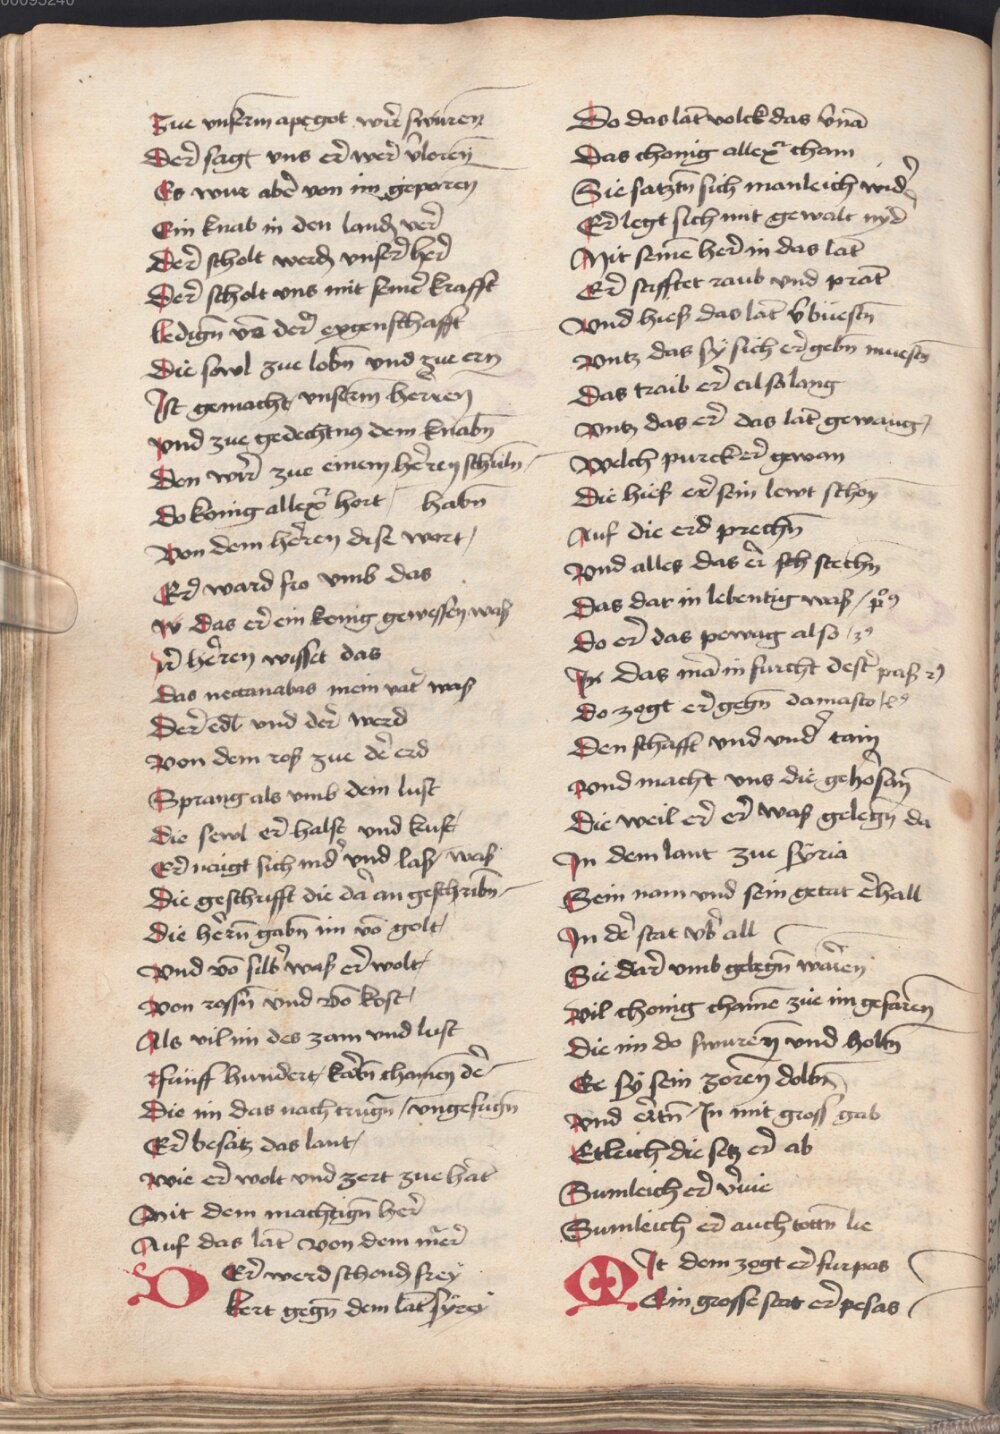 00095240
Zue unserm apegot wir swuren
Der sagt uns er wer v̄loren
Es wur aber von im geporen
Ein knab in den landn ver
Der scholt werdn unser her
Der scholt uns mit seiner krafft
ledign vō der eygenschafft
Die sewl zue lobn und zue ern
Ist gemacht unserm herren
und zue gedechtnus dem knabn
Den wir zue einem herren schulln
do konig allex̄ hort / habn
Von dem herren dise wort /
Er ward fro umb das
das er ein konig gewessen was
ir herren wisset das
Das nectanabus mein vat̄ was
Der edl und der werd
von dem ros zue der erd
Sprang als umb dem lust
Die sewl er halst und kust
Er naigt sich nider und las / was
Die geschrifft die da an geschribn
Die hern gabn im vō golt /
und vō silber was er wolt /
von rossn und vō kost /
Als vil im des zam und lust
funff hundert / karn chamen der
Die im das nach trugn / ungefugn
Er besatz das lant /
wie er wolt und zert zue hāt
Mit dem machtign her
Auf das lāt von dem mer
Der werd schon und frey
kert gegn dem lāt syrei
Do das lāt volck das v̄nā
Das chonig allex̄ cham
Sie satztn sich manleich wider
Er legt sich mit gewalt nyd
Mit seinē her in das lāt
Er stifftet raub und prāt
und hies das lāt v̄buestn
untz das sy sich ergebn muestn
Das traib er als lang
untz das er das lāt gewang /
Welch purck er gewan
Die hies er sein lewt schon
Auf die erd prechn
und alles das er sch stechn
Das dar in lebentig was /
Do er das powag also /
Ir das mā in furcht dester pas
do zogt er gegn damasco
Den schafft und under tain
und macht uns die gehorsam
Die weil er er was gelegn da
In dem lant zue syria
Sein nam und sein getat erhall
In der stat ub̄ all
Sie dar umb gelegn waren
vil chonig chamen zue im gefaren
Die im do swuren und holtn
Ee sy sein zoren doltn
und ertn In mit gross gab
Etleich die setz er ab
Sumleich er v̄trie
Sumleich er auch tottn lie
Mit dem zogt er furpas
Ein grosse stat er pesas